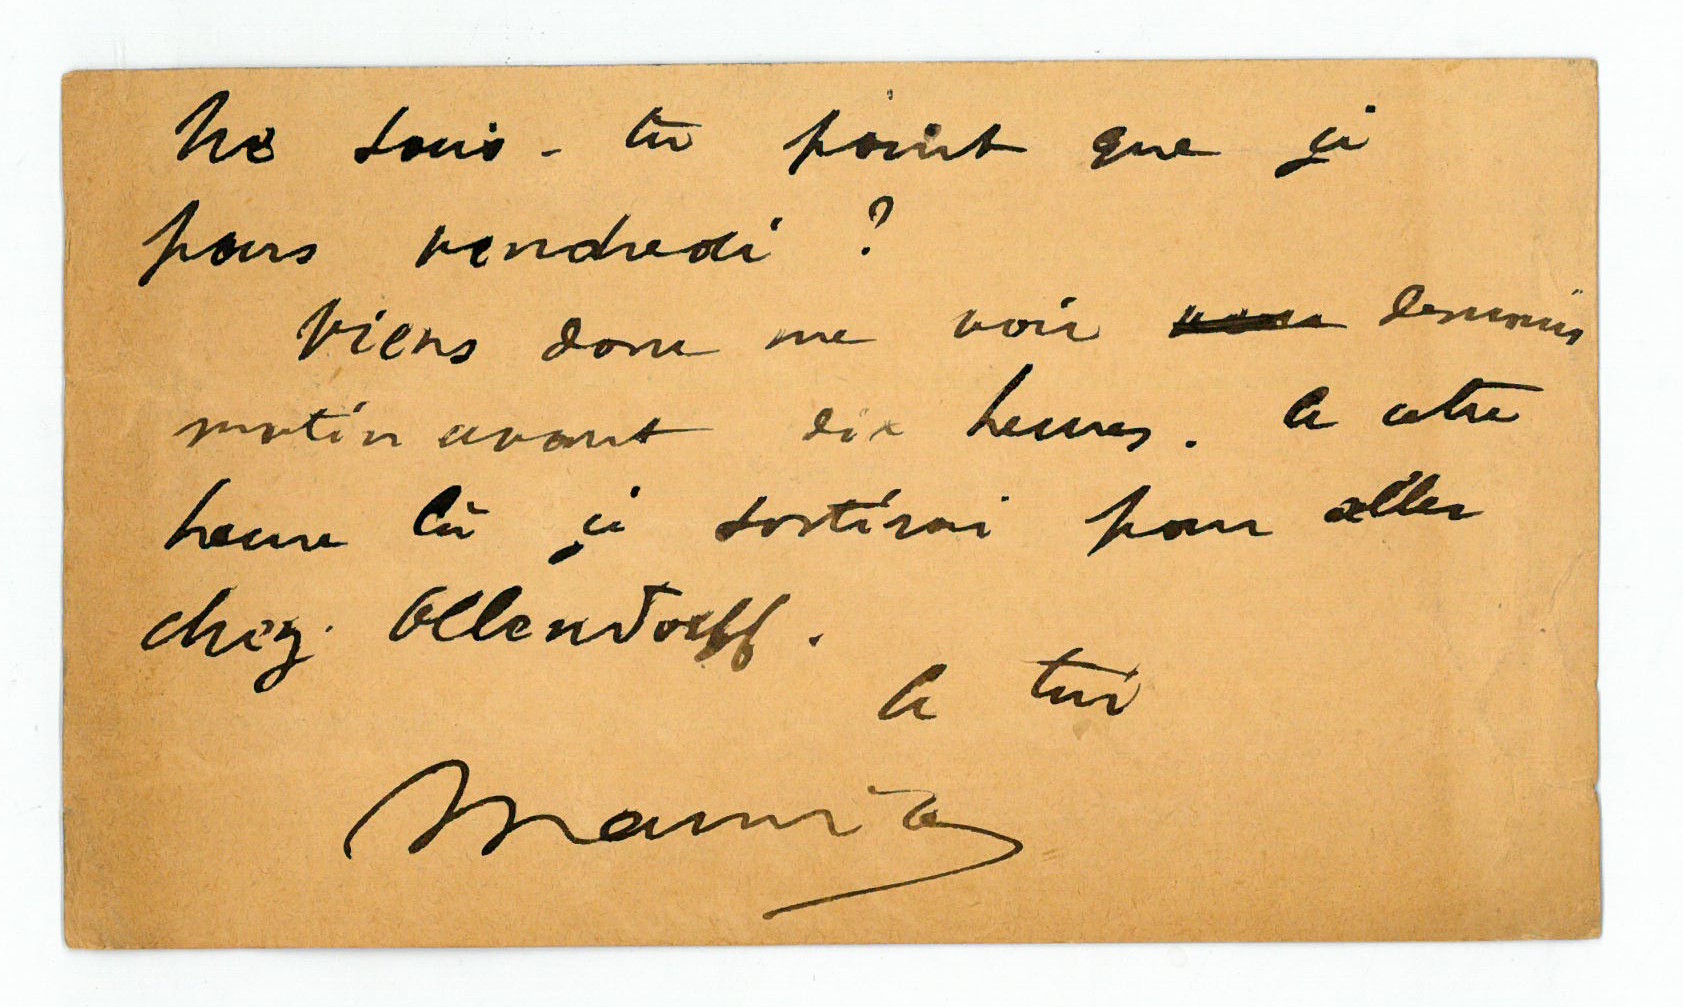 Ne sais-tu point que je
pars vendredi ?
Viens donc me voir demain
matin avant dix heures. A cette
heure là je sortirai pour aller
chez Ollendorff.
A toi